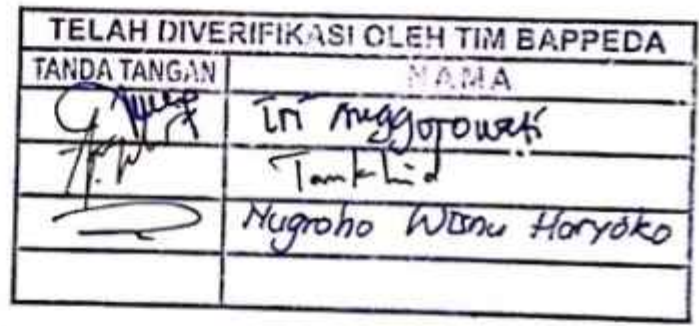 TELAH DIVERIFIKASI OLEH TIM BAPPEDA
TANDA TANGAN NAMA
Tri Anggorowati
Tamkhid
Nugroho Wisnu Haryoko